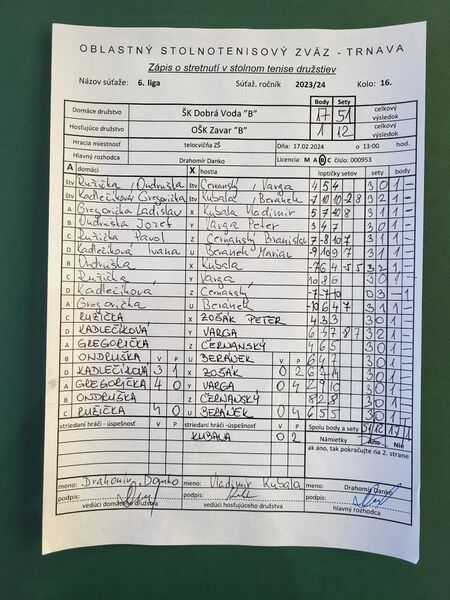 OBLASTNÝ STOLNOTENISOVÝ ZVÄZ - TRNAVA
Zápis o stretnutí v stolnom tenise družstiev
Názov súťaže: 6. liga Súťaž. ročník 2023/24 Kolo: 16.
Body Sety celkový výsledok
Domáce družstvo ŠK Dobrá Voda "B" 17 51
Hosťujúce družstvo OŠK Zavar "B" 1 12 celkový výsledok
Hracia miestnosť telocvičňa ZŠ Dňa: 17.02.2024 o 13:00 hod.
Hlavný rozhodca Drahomír Danko Licencia: M A číslo: 000953
A domáci X hostia loptičky setov sety body
štv Ružička, Ondruška štv Černanský, Varga 4 5 4 3 0 1 -
štv Kadlečíková Gregorička štv Kubala, Beránek 3 2 1 -
A Gregorička Ladislav X Kubala Vladimír 3 1 1 -
B Ondruška Jozef Y Varga Peter 3 4 7 3 0 1 -
C Ružička Pavol Z Černanský Branislav 3 1 1 -
D Kadlečíková Ivana U Beránek Marián 3 1 1 -
B Ondruška X Kubala 3 2 1 -
C Ružička Y Varga 10 8 6 3 0 1 -
D Kadlečíková Z Černanský 0 3 - 1
A Gregorička U Beránek 3 1 1 -
C RUŽIČKA X ZOŠÁK PETER 4 3 3 3 0 1 -
D KADLEČÍKOVÁ Y VARGA 3 2 1 -
A GREGORIČKA Z ČERNANSKÝ 4 6 5 3 0 1 -
B ONDRUŠKA V P U BERÁNEK V P 6 4 7 3 0 1 -
D KADLEČÍKOVÁ 3 1 X ZOŠÁK 0 2 3 0 1 -
A GREGORIČKA 4 0 Y VARGA 0 4 2 9 10 3 0 1 -
B ONDRUŠKA Z ČERNANSKÝ 8 2 8 3 0 1 -
C RUŽIČKA 4 0 U BERÁNEK 0 4 6 5 5 3 0 1 -
striedaní hráči - úspešnosť V P striedaní hráči - úspešnosť V P Spolu body a sety 51 12 17 1
KUBALA 0 2 Námietky Áno Nie
ak áno, tak pokračujte na 2. strane
meno: Drahomír Danko meno: Vladimír Kubala Drahomír Danko
podpis: podpis: podpis:
vedúci domáceho družstva vedúci hosťujúceho družstva hlavný rozhodca